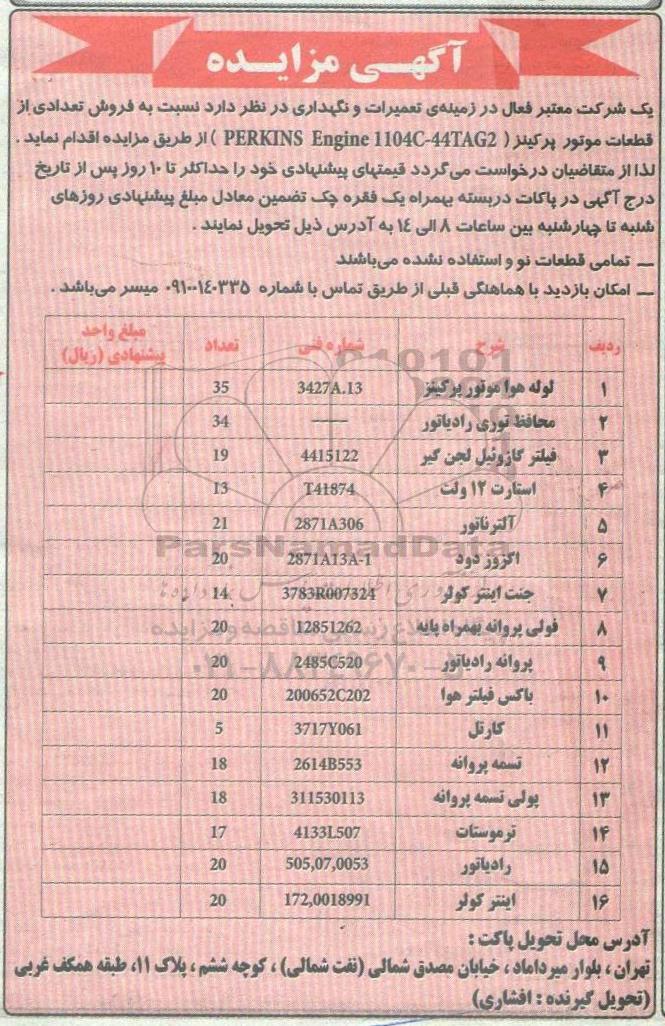 آگهـی مزایـده
یک شرکت معتبر فعال در زمینه‌ی تعمیرات و نگهداری در نظر دارد نسبت به فروش تعدادی از
قطعات موتور پرکینز ( PERKINS Engine 1104C-44TAG2 ) از طریق مزایده اقدام نماید .
لذا از متقاضیان درخواست می‌گردد قیمتهای پیشنهادی خود را حداکثر تا ۱۰ روز پس از تاریخ
درج آگهی در پاکات دربسته بهمراه یک فقره چک تضمین معادل مبلغ پیشنهادی روزهای
شنبه تا چهارشنبه بین ساعات ۸ الی ۱۴ به آدرس ذیل تحویل نمایند .
ــ تمامی قطعات نو و استفاده نشده می‌باشند
ــ امکان بازدید با هماهنگی قبلی از طریق تماس با شماره ۰۹۱۰۰۱۴۰۳۳۵ میسر می‌باشد .
ردیف شرح شماره فنی تعداد مبلغ واحد پیشنهادی (ریال)
۱ لوله هوا موتور پرکینز 3427A.13 35
۲ محافظ توری رادیاتور —— 34
۳ فیلتر گازوئیل لجن گیر 4415122 19
۴ استارت ۱۲ ولت T41874 13
۵ آلترناتور 2871A306 21
۶ اگزوز دود 2871A13A-1 20
۷ جنت اینتر کولر 3783R007324 14
۸ فولی پروانه بهمراه پایه 12851262 20
۹ پروانه رادیاتور 2485C520 20
۱۰ باکس فیلتر هوا 200652C202 20
۱۱ کارتل 3717Y061 5
۱۲ تسمه پروانه 2614B553 18
۱۳ پولی تسمه پروانه 311530113 18
۱۴ ترموستات 4133L507 17
۱۵ رادیاتور 505,07,0053 20
۱۶ اینتر کولر 172,0018991 20
ParsNamadData
۰۲۱-۸۸۳۴۹۶۷۰-۵
آدرس محل تحویل پاکت :
تهران ، بلوار میرداماد ، خیابان مصدق شمالی (نفت شمالی) ، کوچه ششم ، پلاک ۱۱، طبقه همکف غربی
(تحویل گیرنده : افشاری)